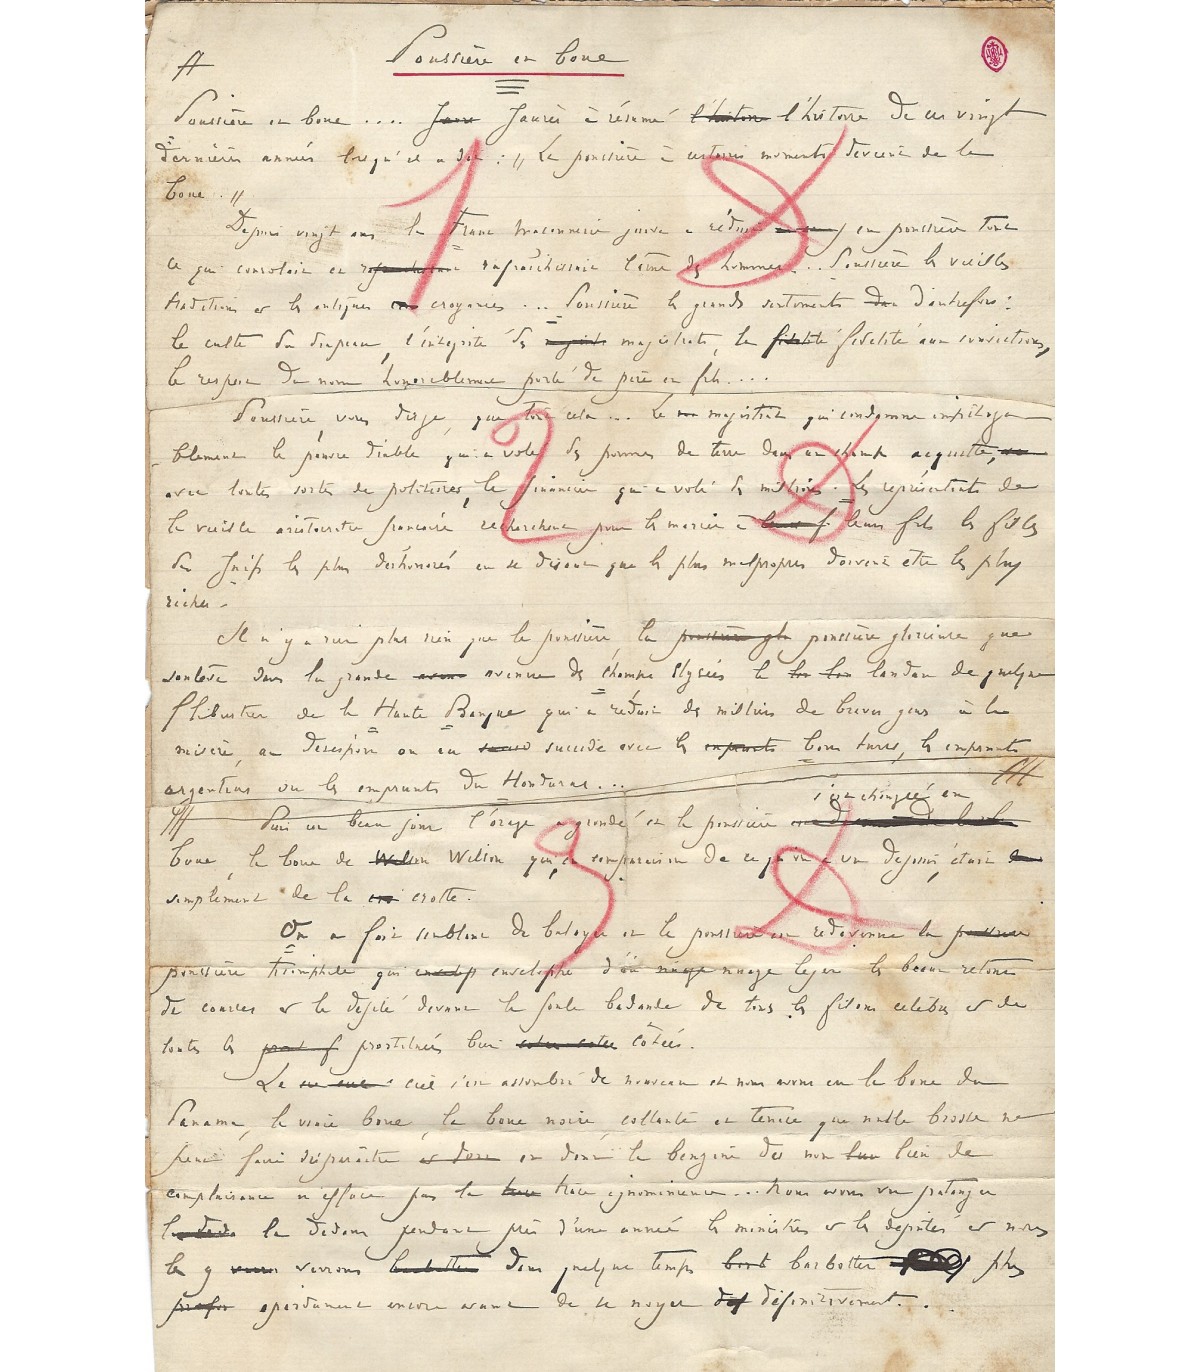 Poussière en boue
Poussière en boue .... Jaurès à résumé l'histoire l'histoire De ces vingt
dernières années lorsqu'il a dit : " La poussière à certains moments devient de la
boue . "
Depuis vingt ans la Franc Maconnerie juive a réduit en poussière tout
ce qui consolait et rafraîchissait l'âme des hommes ... Poussière les vieilles
traditions et les antiques croyances ... Poussière les grands sentiments d'autrefois :
le culte du drapeau, l'intégrité des magistrats, la fidélité fidélité aux convictions,
le respect du nom honorablement porté de père en fils ....
Poussière, vous dis-je, que tout cela ... Le magistrat qui condamne impitoya
blement le pauvre diable qui a volé des pommes de terre dans un champ acquitte,
avec toutes sortes de politesses, le financier qui a volé des millions. Les représentants de
la vieille aristocratie française recherchent pour les marier à leurs fils les filles
des Juifs les plus déshonorés en se disant que les plus malpropres doivent être les plus
riches .
Il n'y a rien plus rien que la poussière, la poussière gl poussière glorieuse que
soulève dans la grande avenue des Champs Elysées le landau de quelque
flibustier de la Haute Banque qui a réduit des milliers de braves gens à la
misère, au desespoir ou au suicide avec les emprunts bons turcs, les emprunts
argentins ou les emprunts du Honduras ...
s'est changée en
Puis un beau jour l'orage a grondé et la poussière
boue, la boue de Wilson Wilson qui, en comparaison de ce qu'on a vu depuis, était
simplement de la crotte.
On a fait semblant de balayer et la poussière est redevenue la
poussière triomphale qui enveloppe d'un nuage nuage leger les beaux retours
de courses et le défilé devant la foule badaude de tous les filous celèbres et de
toutes les prostituées bien cotées cotées.
Le ciel s'est assombri de nouveau et nous avons eu la boue du
Panama, la vraie boue, la boue noire, collante et tenace que nulle brosse ne
peut faire disparaître et dont la benzine des non lieu de
complaisance n'efface pas la trace ignominieuse ... Nous avons vu patauger
la dedans pendant près d'une année les ministres et les députés et nous
les y verrons dans quelque temps barb barbotter plus
opportunément encore avant de se noyer def définitivement. .
1
2
3